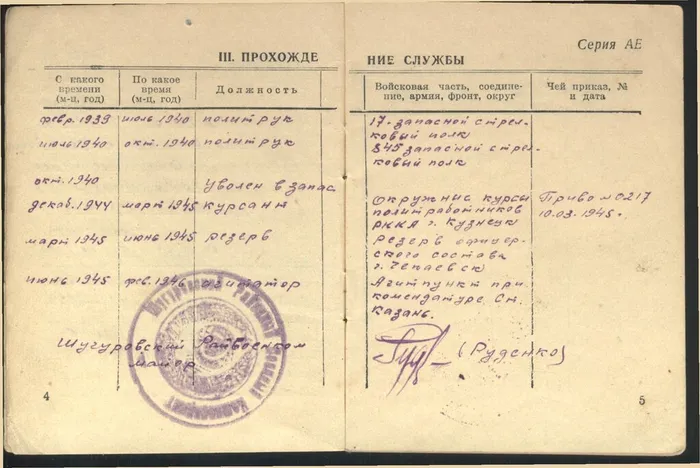 Серия АЕ
III. ПРОХОЖДЕ
НИЕ СЛУЖБЫ
С какого времени (м-ц, год)
По какое время (м-ц, год)
Должность
Войсковая часть, соедине-
ние, армия, фронт, округ
Чей приказ, №
и дата
февр. 1939 июль 1940 политрук
17. запасной стрел-
ковый полк
июль 1940 окт. 1940 политрук
345 запасной стрел-
ковый полк
окт. 1940 Уволен в запас
декаб. 1944 март 1945 курсант
Окружние курсы
политработников
РККА г. Кузнецк
10.03.1945г.
март 1945 июнь 1945 резерв
резерв офицер-
ского состава
г. Чепаевск
июнь 1945 фев. 1946 агитатор
Агитпункт при
комендатуре ст.
Казань.
Шугуровский Райвоенком
майор
(Руденко)
4
5